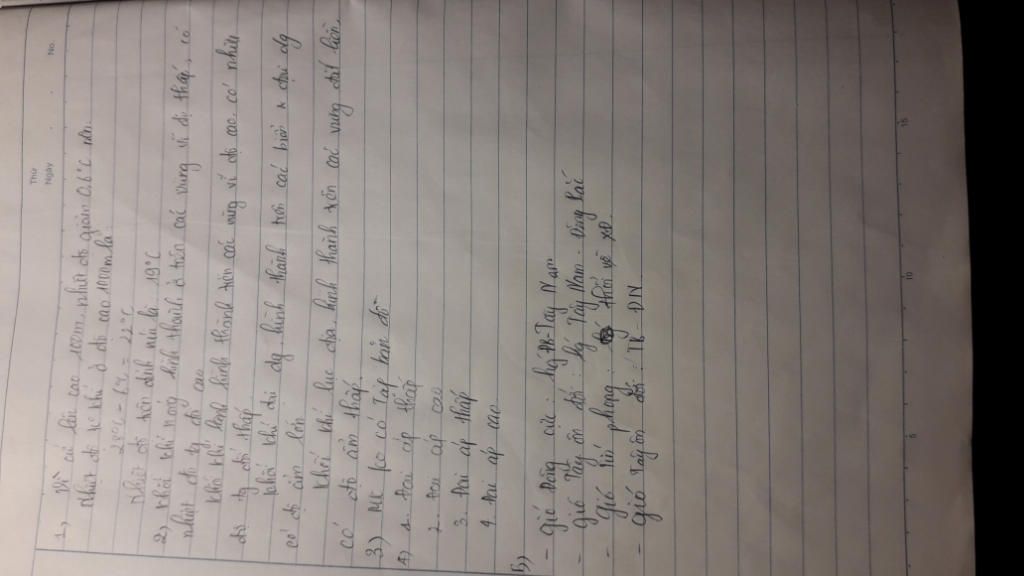 Thứ
Ngày . No.
1) Vì cứ lên cao 100m nhiệt độ giảm 0,6°C nên
nhiệt độ k khí ở độ cao 1000m là
28°C - 6°C = 22°C
Nhiệt độ trên đỉnh núi là 19°C
2) khối khí nóng hình thành ở trên các vùng vĩ độ thấp, có
nhiệt độ tg đối cao
khối khí lạnh hình thành trên các vùng vĩ độ cao, có nhiệt
độ tg đối thấp
khối khí đại dg hình thành trên các biển x đại dg
có độ ẩm lớn
khối khí lục địa hình thành trên các vùng đất liền,
có độ ẩm thấp
3) Mk ko có Tập bản đồ
4) 1. đai áp thấp
2. đai áp cao
3. đai áp thấp
4. đai áp cao
5)
- gió Đông cực : hg ĐB - Tây Nam
- gió Tây ôn đới : hg Tây Nam - Đông Bắc
- gió tín phong : thổi về xĐ
- gió Tây ôn đới : TB - ĐN
5 10 15